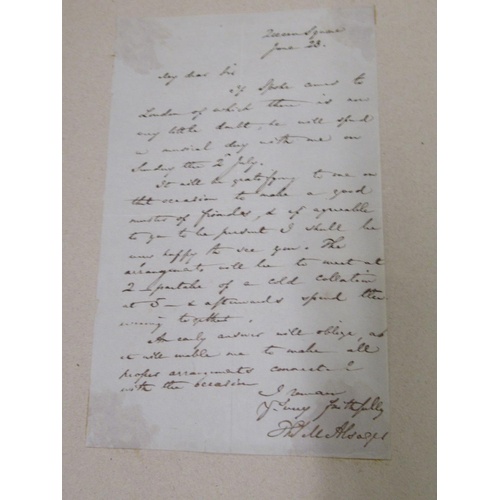 Queen Square
June 23.
My dear Sir
If Spohr comes to
London of which there is now
very little doubt, he will spend
a musical day with me on
Sunday the 2d July.
It will be gratifying to me on
that occasion to make a good
muster of friends, & if agreeable
to you to be present I shall be
very happy to see you. The
arrangements will be to meet at
2 - partake of a cold collation
at 5 - & afterwards spend the
evening together.
An early answer will oblige, as
it will enable me to make all
proper arrangements connected
with the occasion
I remain
Yours faithfully
Thos M Alsager